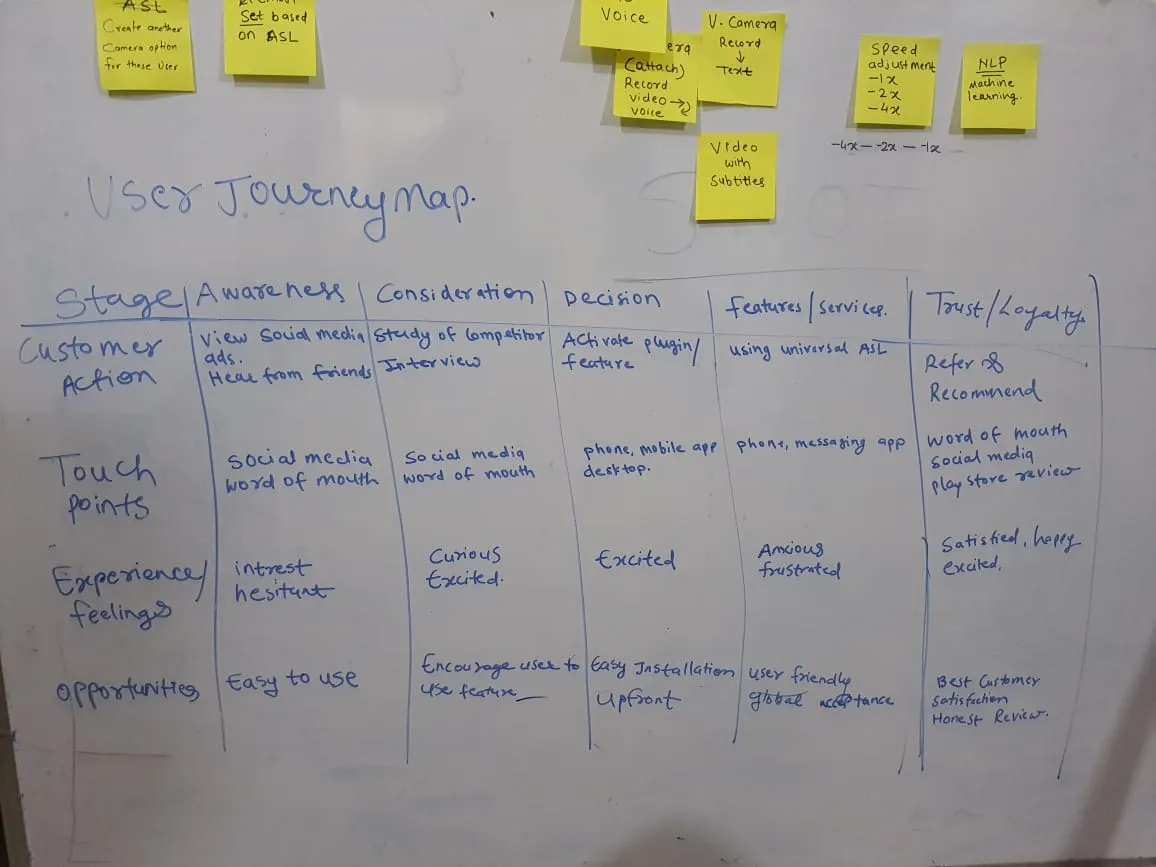 ASL
Create another
Camera option
for these User
Set based
on ASL
Voice
(attach)
Record
video →
voice
V. Camera
Record
↓
Text
Video
with
Subtitles
Speed
adjustment
-1x
-2x
-4x
NLP
Machine
learning.
-4x — -2x — -1x
User Journey Map.
Stage
Awareness
Consideration
Decision
features/services.
Trust/Loyalty
Customer
Action
View Social media
ads.
Hear from friends
Study of Competitor
Interview
Activate plugin/
feature
using universal ASL
Refer &
Recommend
Touch
points
social media
word of mouth
social media
word of mouth
phone, mobile app
desktop.
phone, messaging app
word of mouth
social media
play store review
Experience/
feelings
intrest
hesitant
Curious
Excited.
Excited
Anxious
frustrated
Satisfied, happy
excited.
opportunities
Easy to use
Encourage user to
use feature
Easy Installation
Upfront
user friendly
global acceptance
Best Customer
satisfaction
Honest Review.